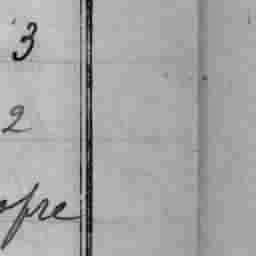 3
2
opre